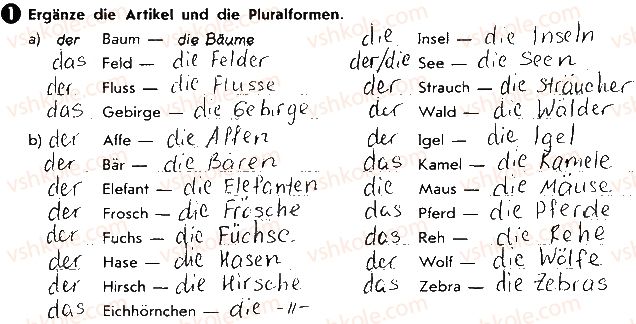 1 Ergänze die Artikel und die Pluralformen.
a) der Baum — die Bäume
das Feld — die Felder
der Fluss — die Flusse
das Gebirge — die Gebirge
die Insel — die Inseln
der/die See — die Seen
der Strauch — die Sträucher
der Wald — die Wälder
b) der Affe — die Affen
der Bär — die Bären
der Elefant — die Elefanten
der Frosch — die Frösche
der Fuchs — die Füchse
der Hase — die Hasen
der Hirsch — die Hirsche
das Eichhörnchen — die -II-
der Igel — die Igel
das Kamel — die Kamele
die Maus — die Mäuse
das Pferd — die Pferde
das Reh — die Rehe
der Wolf — die Wölfe
das Zebra — die Zebras